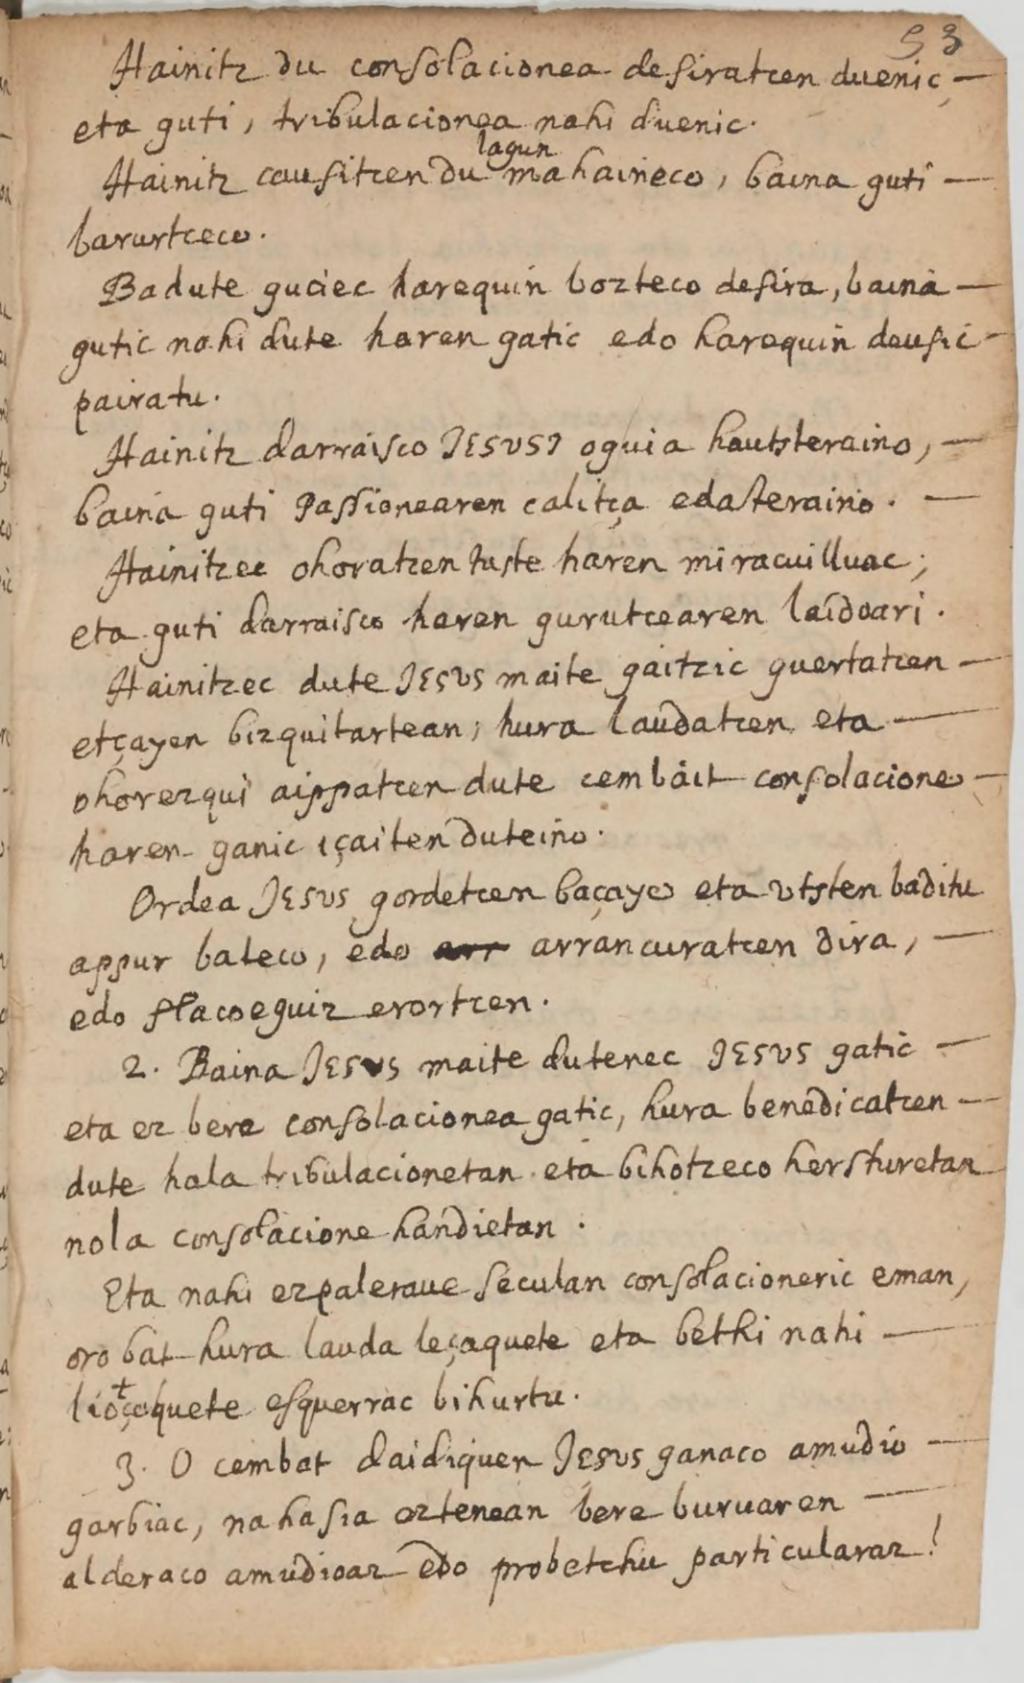 53
Hainitz du consolacionea desiratcen duenic, —
eta guti, tribulacionea nahi duenic.
Hainitz causitcen du lagun mahaineco, baina guti —
barurtceco.
Badute guciec harequin bozteco desira, baina —
gutic nahi dute haren gatic edo harequin deusic —
pairatu.
Hainitz darraisco JESUSI oguia hautsteraino, —
baina guti Passionearen calitça edasteraino. —
Hainitzec ohoratcen tuste haren miracuilluac;
eta guti darraisco haren gurutcearen laidoari.
Hainitzec dute JESUS maite gaitzic guertatcen —
etçayen bizquitartean; hura laudatcen eta —
ohorezqui aippatcen dute cembait consolacione —
haren ganic içaiten duteino.
Ordea JESUS gordetcen baçaye eta utsten baditu
appur bateco, edo arr arrancuratcen dira, —
edo flacoeguiz erortcen.
2. Baina JESUS maite dutenec JESUS gatic —
eta ez bere consolacionea gatic, hura benedicatcen —
dute hala tribulacionetan eta bihotzeco hersturetan
nola consolacione handietan.
Eta nahi ezpalerave seculan consolacioneric eman,
orobat hura lauda leçaquete eta bethi nahi —
lioçoquete esquerrac bihurtu.
3. O cembat daidiquen JESUS ganaco amudio —
garbiac, nahasia eztenean bere buruaren —
alderaco amudioaz edo probetchu particularaz!